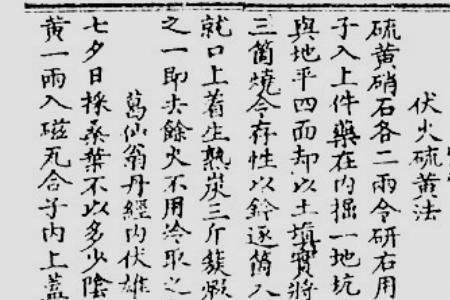 伏火硫黄法
硫黄硝石各二兩令研右用
子入上件藥在内掘一地坑
與地平四面却以土填實將
三箇燒令存性以鈐逐箇入
就口上着生熟炭三斤簇煅
之一即去餘火不用冷取之
葛仙翁丹經内伏雄
七夕日採桑葉不以多少陰
黄一兩入磁瓦合子内上蓋